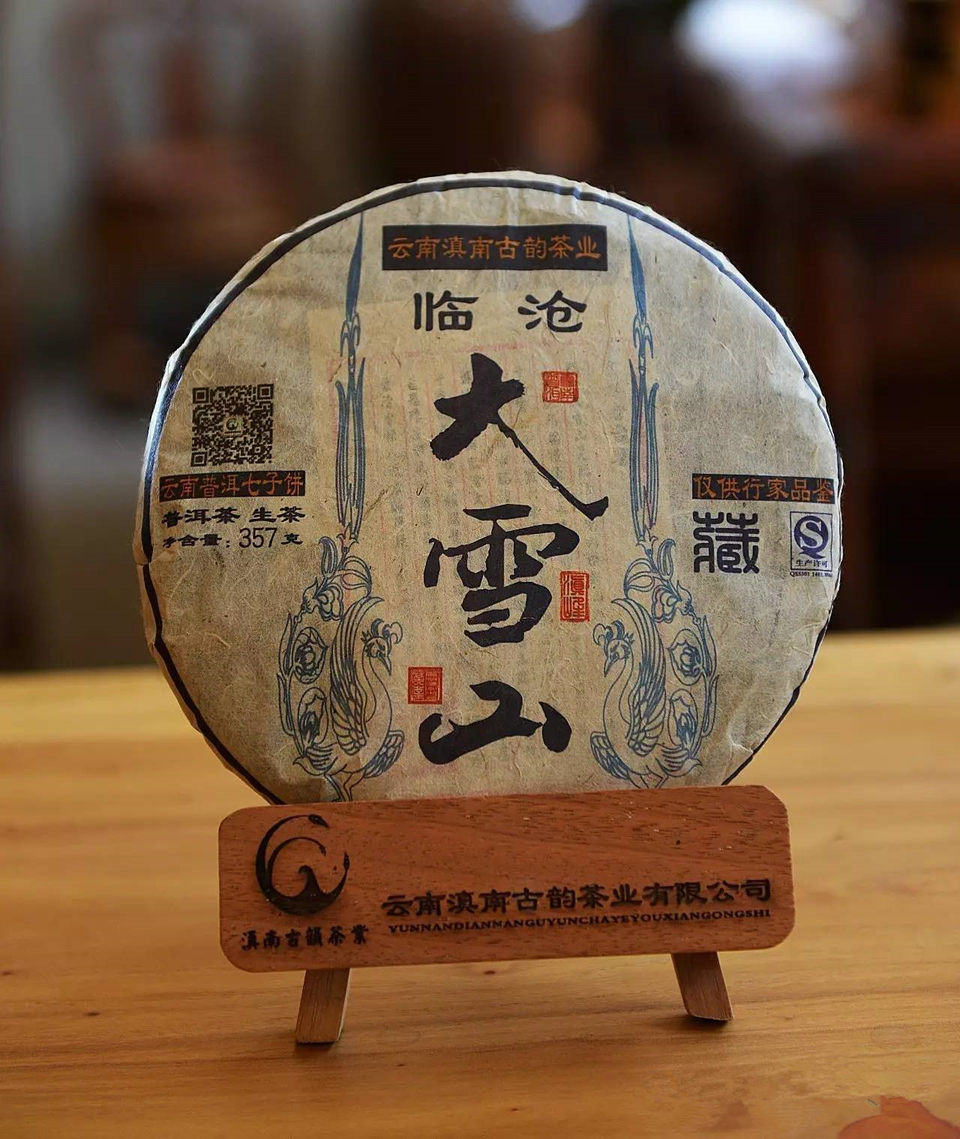 云南滇南古韵茶业
临沧
大雪山
云南普洱七子饼
普洱茶 生茶
净含量：357克
仅供行家品鉴
藏
S
生产许可
滇南古韻茶業
云南滇南古韵茶业有限公司
YUNNANDIANNANGUYUNCHAYEYOUXIANGONGSHI